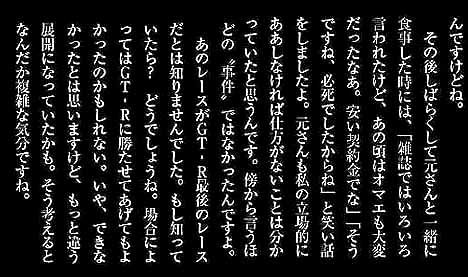 んですけどね。
　その後しばらくして元さんと一緒に
食事した時には、「雑誌ではいろいろ
言われたけど、あの頃はオマエも大変
だったなあ。安い契約金でな」「そう
ですね、必死でしたからね」と笑い話
をしましたよ。元さんも私の立場的に
ああしなければ仕方がないことは分か
っていたと思うんです。傍から言うほ
どの〝事件〟ではなかったんですよ。
　あのレースがGT-R最後のレース
だとは知りませんでした。もし知って
いたら？　どうでしょうね。場合によ
ってはGT-Rに勝たせてあげてもよ
かったのかもしれない。いや、できな
かったとは思いますけど、もっと違う
展開になっていたかも。そう考えると
なんだか複雑な気分ですね。